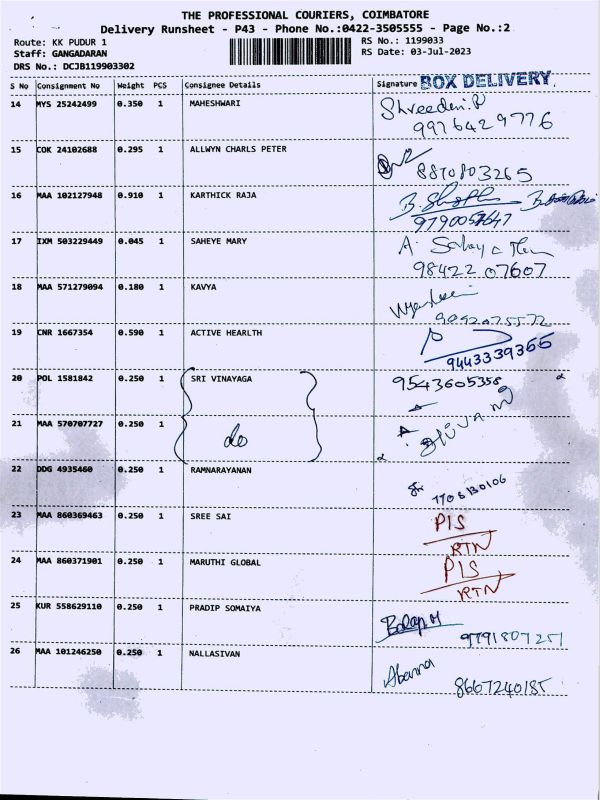 THE PROFESSIONAL COURIERS, COIMBATORE
Delivery Runsheet - P43 - Phone No.:0422-3505555 - Page No.:2
Route: KK PUDUR 1
Staff: GANGADARAN
DRS No.: DCJB119903302
RS No.: 1199033
RS Date: 03-Jul-2023
S No Consignment No Weight PCS Consignee Details Signature BOX DELIVERY
14 MYS 25242499 0.350 1 MAHESHWARI
9976429776
15 COK 24102688 0.295 1 ALLWYN CHARLS PETER
8870803265
16 MAA 102127948 0.910 1 KARTHICK RAJA
17 IXM 503229449 0.045 1 SAHEYE MARY
98422 07607
18 MAA 571279094 0.180 1 KAVYA
9092075572
19 CNR 1667354 0.590 1 ACTIVE HEARLTH
9443339366
20 POL 1581842 0.250 1 SRI VINAYAGA 9543605358
21 MAA 570707727 0.250 1 do
22 DDG 4935460 0.250 1 RAMNARAYANAN
23 MAA 860369463 0.250 1 SREE SAI PIS
RTN
24 MAA 860371901 0.250 1 MARUTHI GLOBAL PIS
RTN
25 KUR 558629110 0.250 1 PRADIP SOMAIYA
9791807251
26 MAA 101246250 0.250 1 NALLASIVAN
8667240185